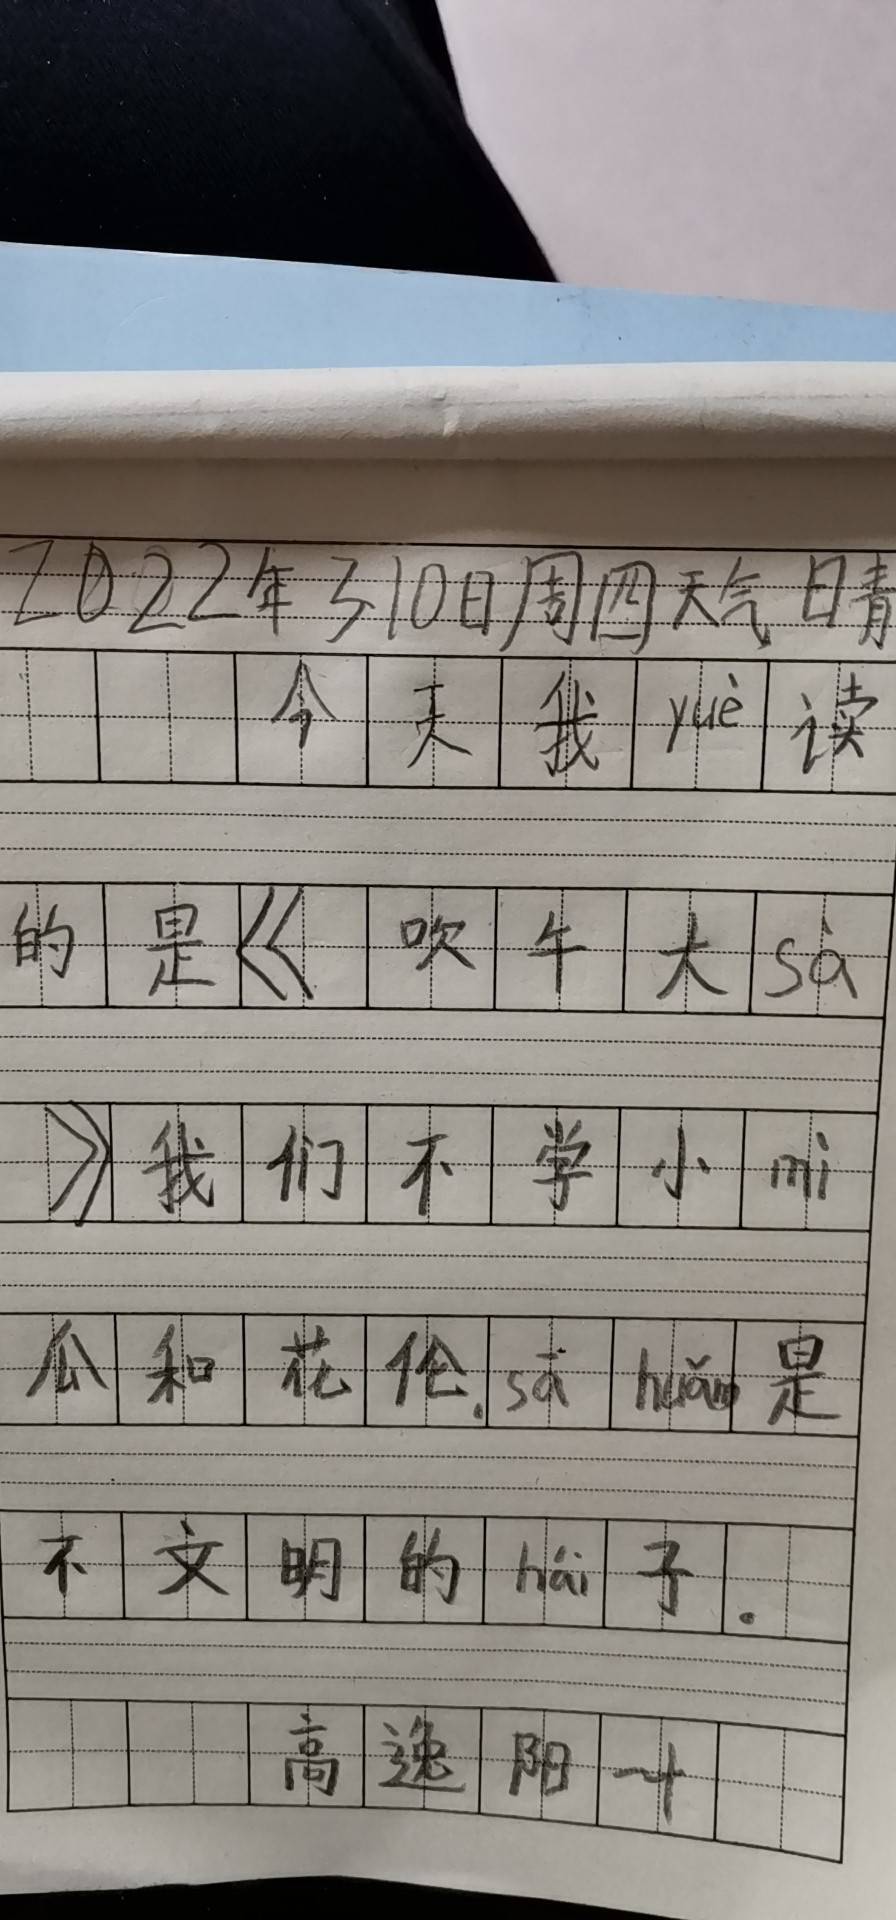 2022年310日周四天气日青
今天我yuè读
的是《吹午大sà
》我们不学小mì
瓜和花伦.sā huǎn是
不文明的hái子.
高逸阳